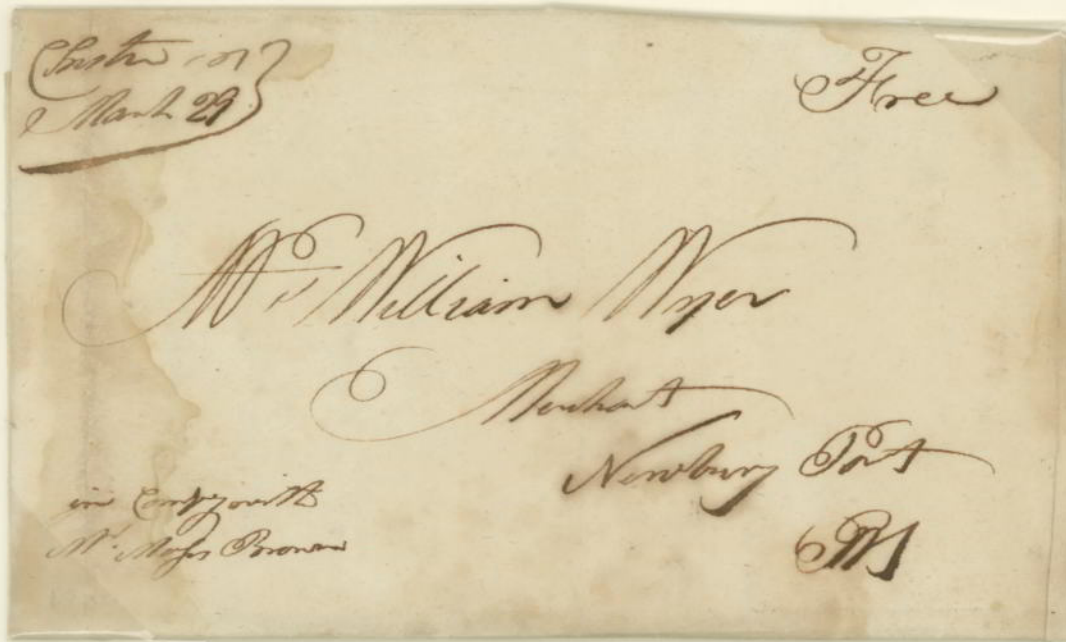 Chester
March 29
Free
Mr. William Wyer
Merchant
Newbury Port
in Compy with
Mr. Moses Brown